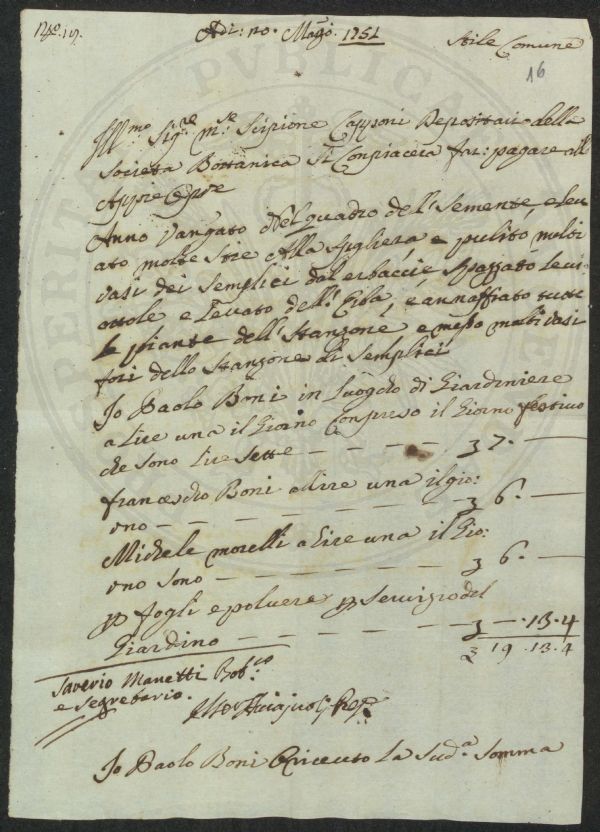 N.o 19.
Adi: 20. Mag.o 1751
Stile Comune
16
Ill.mo Sig.re M.se Scipione Capponi Depositario della
Società Bottanica Si Conpiacera far: pagare all
Appie
Anno Vangato Nel quadro dell Semente, e leu
ato molte Stie Alla Spagliera, e pulito molti
vasi dei Semplici dal erbaccie, Spazzato le vi
ottole e Levato dell Erba, e annaffiato tutte
le piante dell Stanzone e messo molti vasi
fori dello Stanzone di Semplici
Io Paolo Boni in Luogo di Giardiniere
a Lire una il Giorno Conpreso il Giorno festivo
che sono Lire Sette — — — — — 7. —
francescho Boni a lire una il gio:
rno — — — — — — — — 6. —
Michele morelli a Lire una il Gio:
rno sono — — — — — — — 6. —
p fogli e polvere p servizio del
Giardino — — — — — — — —. 13. 4
19. 13. 4
Saverio Manetti
e Segretario.
Io Paolo Boni O ricevuto la Sud.a Somma
PVBLICAE